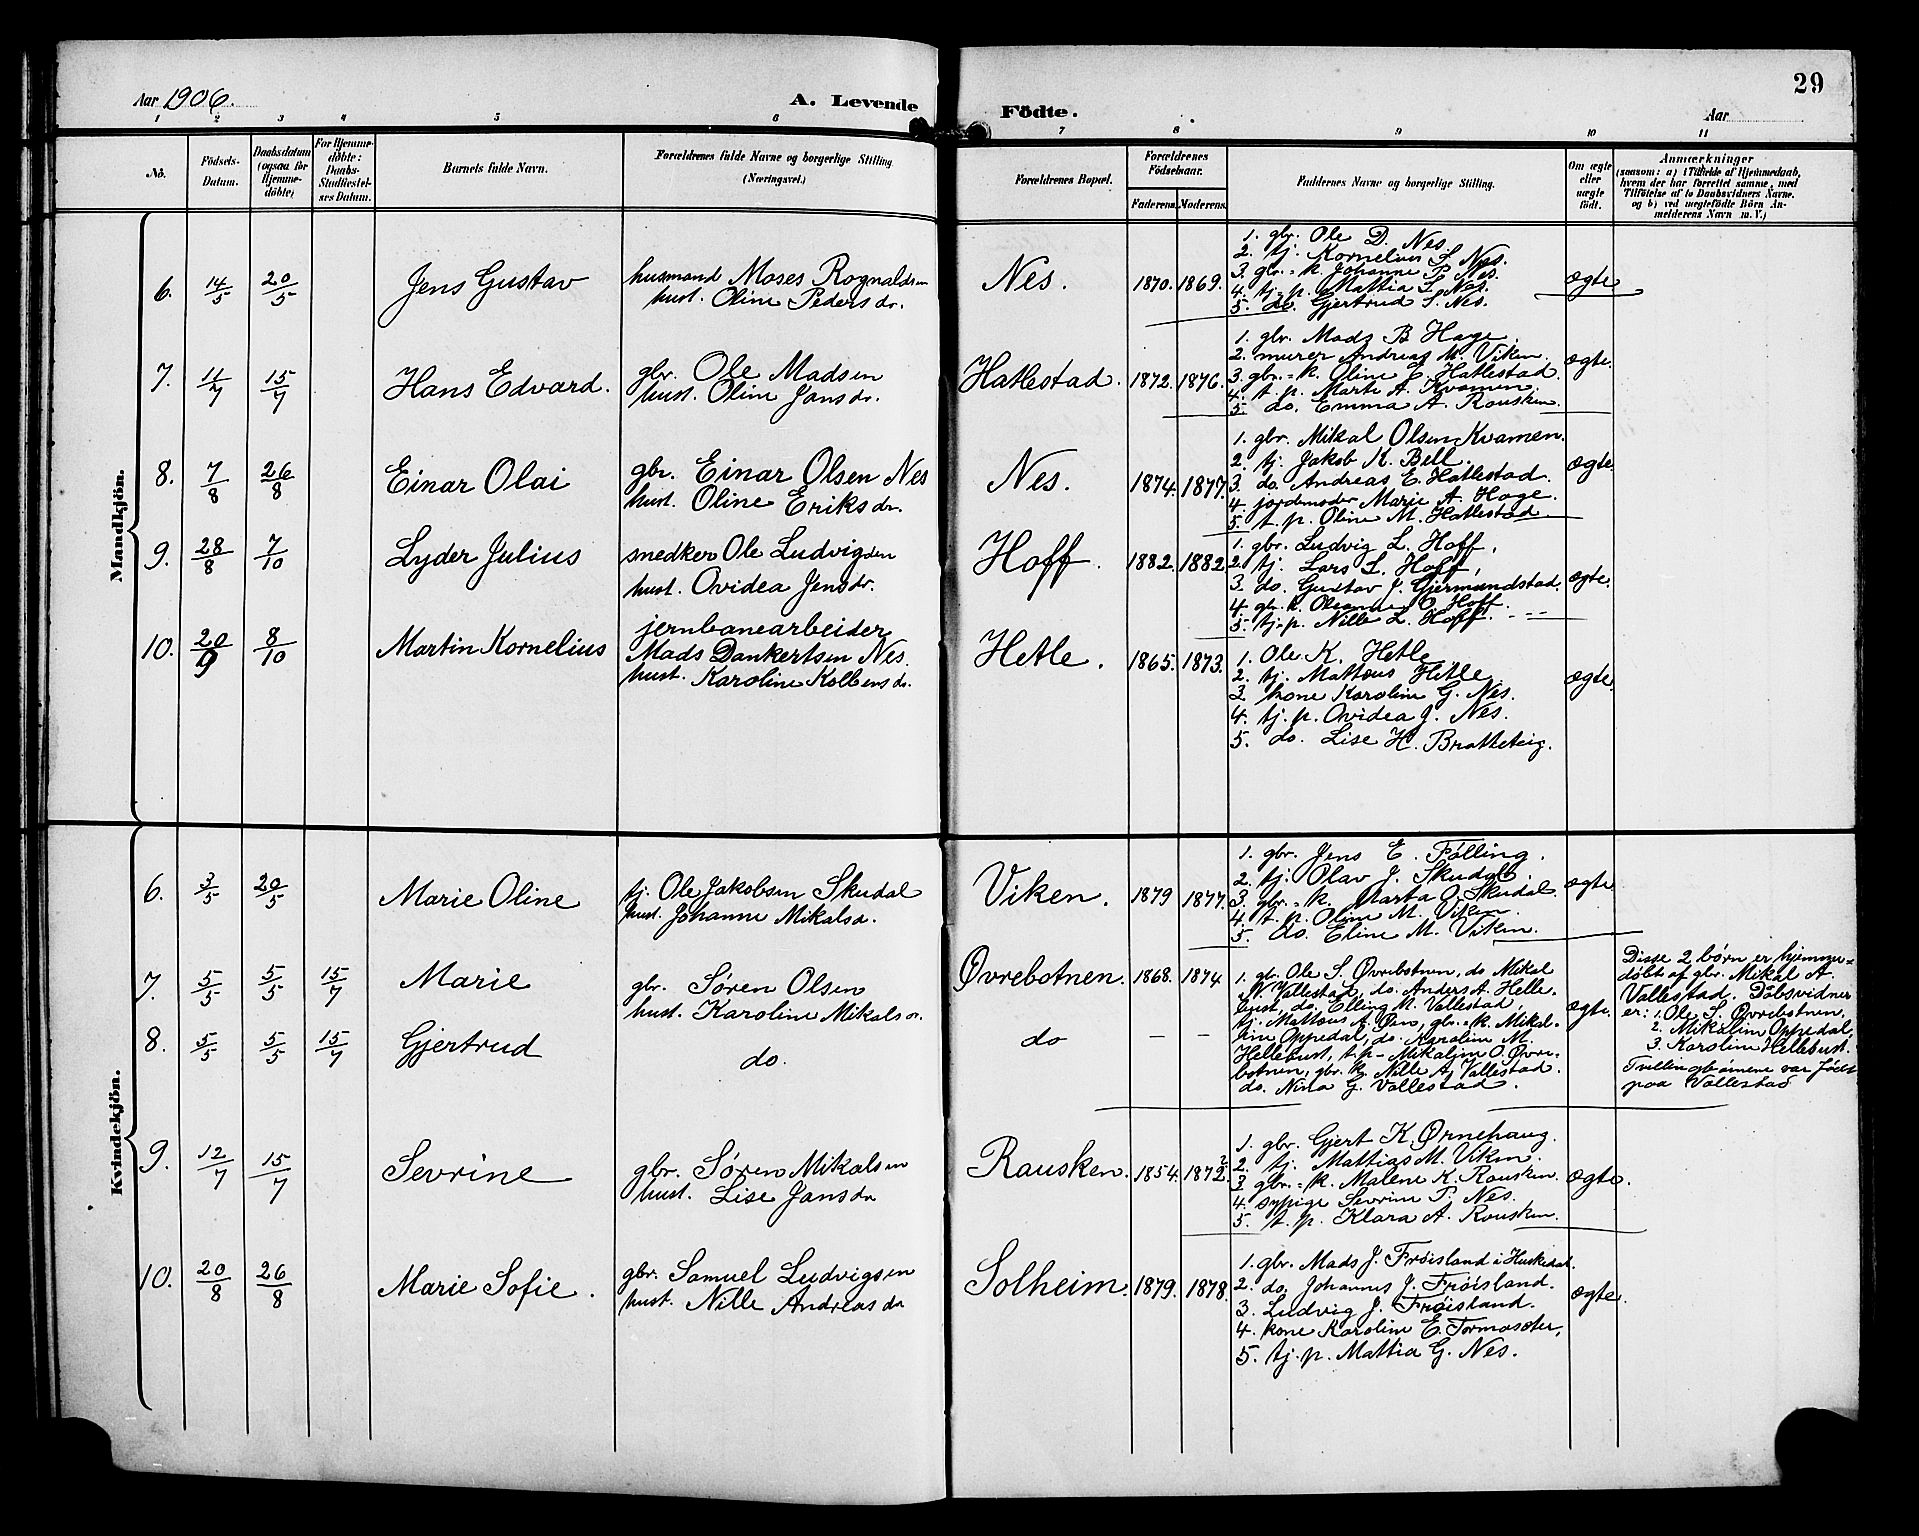 29
Aar 1906.
A. Levende Födte.
Aar
1 2 3 4 5 6 7 8 9 10 11
No.
Födsels-
Datum.
Daabsdatum
(ogsaa for
Hjemme-
döbte)
For Hjemme-
döbte:
Daabs-
Stadfæstel-
ses Datum.
Barnets fulde Navn.
Forældrenes fulde Navne og borgerlige Stilling
(Næringsvei.)
Forældrenes Bopæl.
Forældrenes
Födselsaar.
Faderens. Moderens.
Faddernes Navne og borgerlige Stilling.
Om ægte
eller
uægte
födt.
Anmærkninger
(saasom: a) i Tilfælde af Hjemmedaab,
hvem der har forrettet samme, med
Tilföielse af to Daabsvidners Navne.
og b) ved uægtefödte Börn An-
melderens Navn m. V.)
Mandkjön.
6. 14/5 20/5 Jens Gustav
husmand Moses Rognaldsen
hust. Oline Pedersdr.
Nes. 1870. 1869.
1. gbr. Ole D. Nes.
2. tj. Kornelius S. Nes.
3. gbr.=k. Johanne P. Nes.
4. tj.=p. Mattia S. Nes.
5. do. Gjertrud S. Nes.
ægte
7. 11/7 15/7 Hans Edvard.
gbr. Ole Madsen
hust. Oline Jansdr.
Hatlestad. 1872. 1876.
1. gbr. Mads B Hage.
2. murer Andreas M. Viken.
3. gbr.=k. Oline E. Hatlestad.
4. t. p. Marte A. Kvamen.
5. do. Emma A. Rausken.
ægte.
8. 7/8 26/8 Einar Olai
gbr. Einar Olsen Nes
hust. Oline Eriksdr.
Nes. 1874. 1877.
1. gbr. Mikal Olsen Kvamen.
2. tj. Jakob K. Bell.
3. do. Andreas E. Hatlestad.
4. jordmoder Marie A. Hage.
5. t. p. Oline M. Hatlestad.
ægte.
9. 28/8 7/10 Lyder Julius
snedker Ole Ludvigsen
hust. Ovidea Jensdr.
Hoff. 1882. 1882
1. gbr. Ludvig L. Hoff,
2. tj. Lars L. Hoff,
3. do. Gustav J. Gjermundstad.
4. gbr. k. Oleanna O. Hoff.
5. tj.p. Nille L. Hoff.
ægte.
10. 20/9 8/10 Martin Kornelius
jernbanearbeider
Mads Dankertsen Nes.
hust. Karoline Kolbensdr.
Hetle. 1865. 1873.
1. Ole K. Hetle
2. tj. Mattøus Hetle
3. kone Karoline G. Nes.
4. tj. p. Ovidea J. Nes.
5. do. Lise H. Bratteteig.
ægte.
Kvindekjön.
6. 3/5 20/5 Marie Oline
tj. Ole Jakobsen Skudal
hust. Johanne Mikalsdr.
Viken. 1879 1877.
1. gbr. Jens E. Følling.
2. tj. Olav J. Skudal.
3. gbr.=k. Marta O. Skudal.
4. t. p. Oline M. Viken.
5. do. Eline M. Viken.
ægte
7. 5/5 5/5 15/7 Marie
gbr. Søren Olsen
hust. Karoline Mikalsdr.
Øvrebotnen. 1868. 1874
8. 5/5 5/5 15/7 Gjertrud
do.
do — —
1. gbr. Ole S. Øvrebotnen, do Mikal
N. Vallestad, do. Anders A. Helle-
bust, do Elling M. Vallestad
tj. Mattøus A. Øen, gbr.=k. Mikal-
ine Oppedal, do. Karoline M.
Hellebust, t. p- Mikaline O. Øvre-
botnen, gbr. k. Nille A. Vallestad.
do. Nina G. Vallestad.
ægte.
Disse 2 børn er hjemme-
døbt af gbr. Mikal A.
Vallestad. Døbsvidner
er: 1. Ole S. Øvrebotnen.
2. Mikaline Oppedal,
3. Karoline Hellebust.
Tvillingbørnene var født
paa Vallestad
9. 12/7 15/7 Sevrine
gbr. Søren Mikalsen
hust. Lise Jansdr
Rausken. 1854. 1872.
1. gbr. Gjert K. Ørnehaug.
2. tj. Mattias M. Viken.
3. gbr.=k. Malene K. Rausken.
4. sypige Sevrine P. Nes.
5. t. p. Klara A. Rausken.
ægte.
10. 20/8 26/8 Marie Sofie.
gbr. Samuel Ludvigsen
hust. Nille Andreasdr
Solheim. 1879. 1878.
1. gbr. Mads J. Frøisland i Huskedal.
2. do. Johannes J. Frøisland.
3. Ludvig J. Frøisland.
4. kone Karoline E. Tormosæter,
5. tj. p. Mattia G. Nes.
ægte.